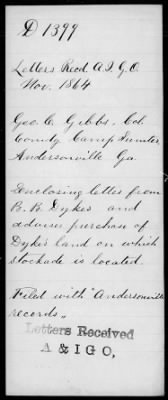 D 1399
Letters Recd. A.I.G.O.
Nov. 1864
Geo. C. Gibbs. Col.
Comdg Camp Sumter,
Andersonville Ga.
Enclosing letter from
B. B. Dykes and
advises purchase of
Dykes land on which
stockade is located.
Filed with "Andersonville
records"
Letters Received
A & I G O,